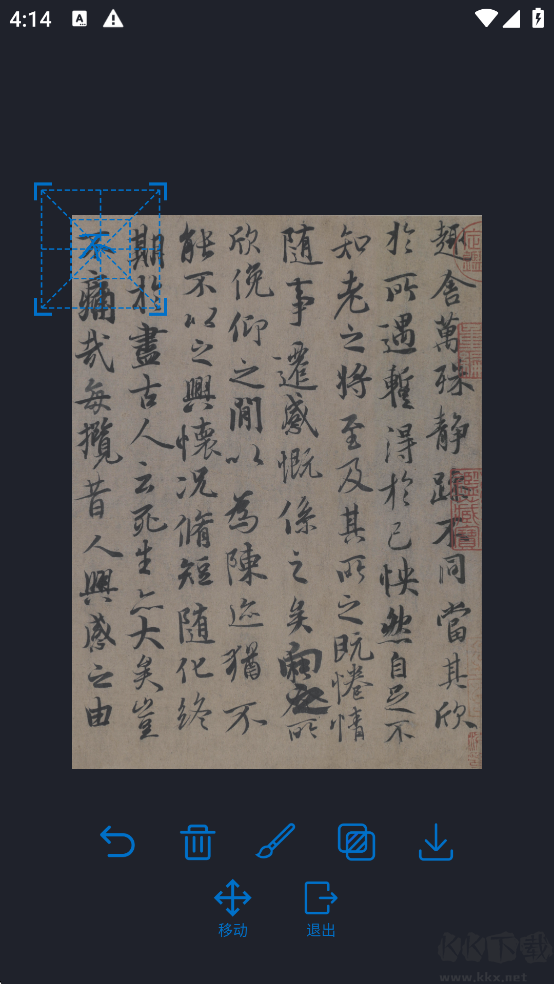 4:14
趣舍萬殊静躁不同當其欣
於所遇暫得於己怏然自足不
知老之將至及其所之既惓情
随事遷感慨係之矣向之所
欣俛仰之閒以為陳迹猶不
能不以之興懷况脩短随化終
期於盡古人云死生亦大矣豈
不痛哉每攬昔人興感之由
移动
退出
KK下载
www.kkx.net